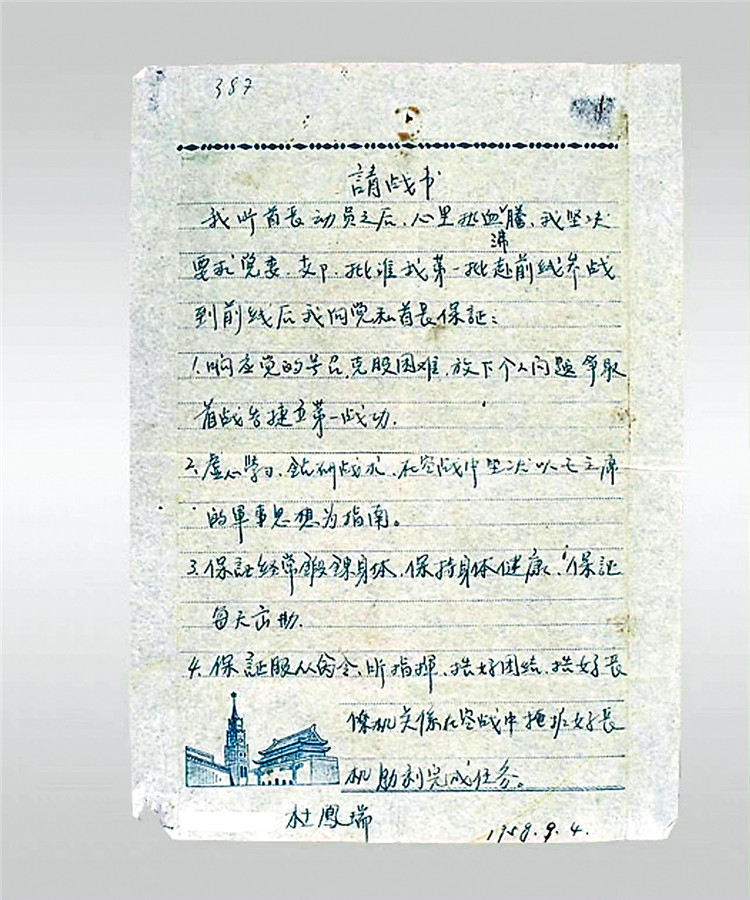 387
請战书
我听首長动员之后、心里热血沸騰、我坚决
要求党委、支P、批准我第一批赴前线参战
到前线后我向党和首長保証：
1.响应党的号召,克服困难、放下个人问题争取
首战告捷立第一战功.
2.虚心学习、鉆研战术、在空战中坚决以毛主席
的軍事思想为指南。
3.保証经常鍛鍊身体、保持身体健康、保証
每天出勤.
4.保証服从命令、听指揮、搞好团结、搞好長
僚机关係在空战中掩护好長
机勝利完成任务。
杜鳳瑞
1958.9.4.